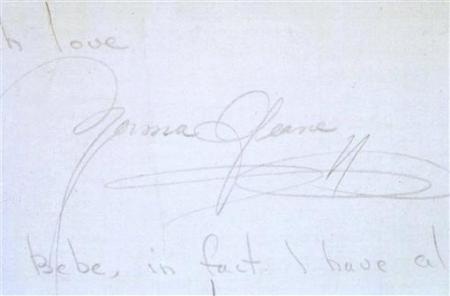 h love
Norma Jeane
Bebe, in fact I have al